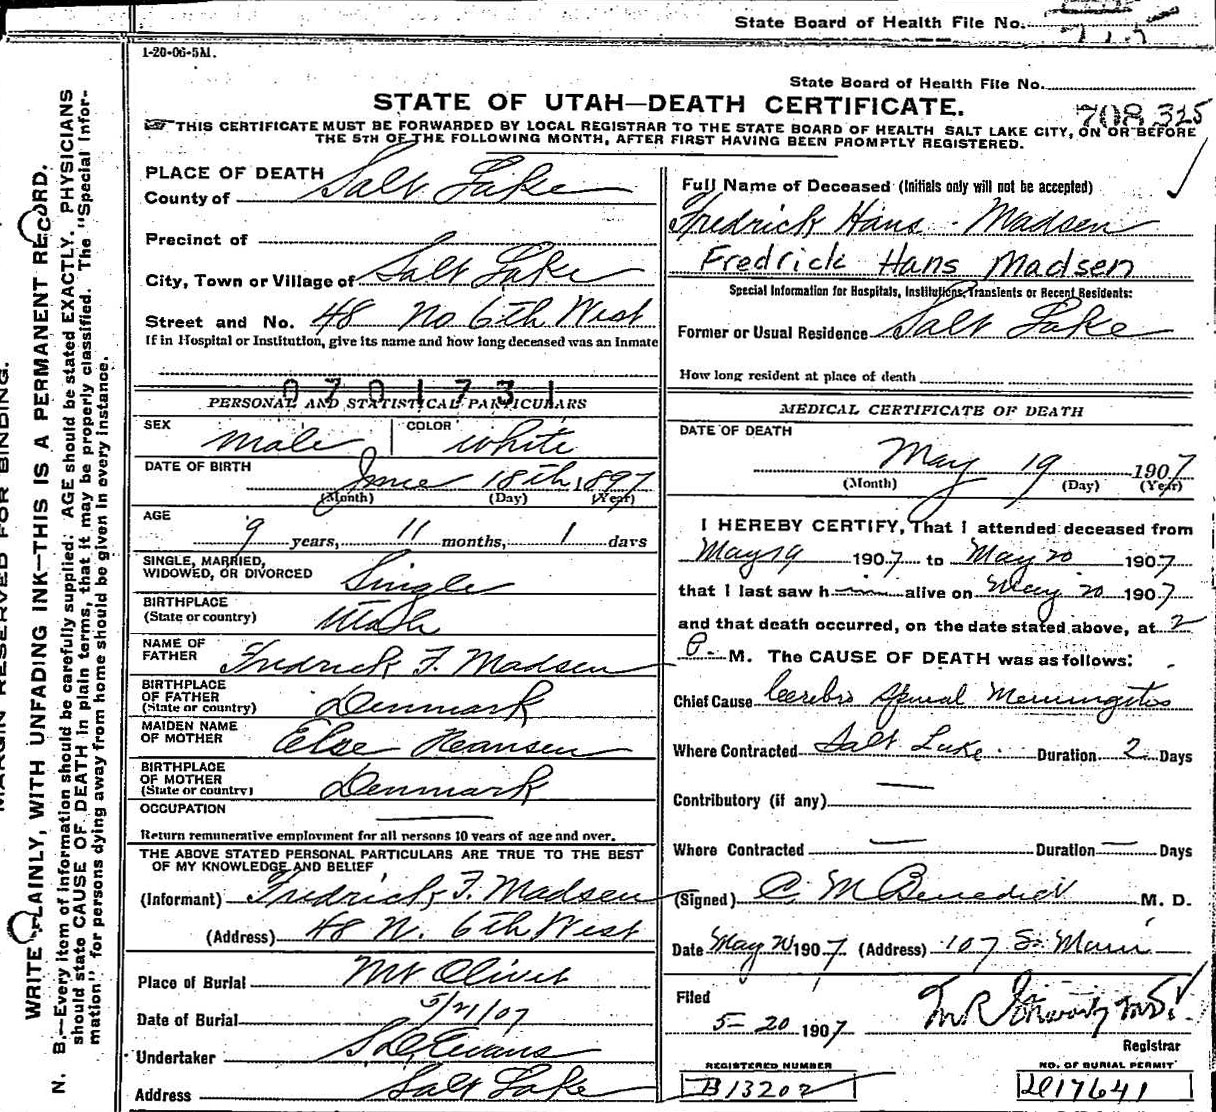 State Board of Health File No.
1-20-06-5M.
State Board of Health File No.
STATE OF UTAH—DEATH CERTIFICATE.
708 325
THIS CERTIFICATE MUST BE FORWARDED BY LOCAL REGISTRAR TO THE STATE BOARD OF HEALTH SALT LAKE CITY, ON OR BEFORE
THE 5TH OF THE FOLLOWING MONTH, AFTER FIRST HAVING BEEN PROMPTLY REGISTERED.
MARGIN RESERVED FOR BINDING.
WRITE PLAINLY, WITH UNFADING INK—THIS IS A PERMANENT RECORD.
N. B.—Every item of information should be carefully supplied. AGE should be stated EXACTLY. PHYSICIANS
should state CAUSE OF DEATH in plain terms, that it may be properly classified. The "Special Infor-
mation" for persons dying away from home should be given in every instance.
PLACE OF DEATH
County of Salt Lake
Precinct of
City, Town or Village of Salt Lake
Street and No. 48 No 6th West
If in Hospital or Institution, give its name and how long deceased was an Inmate
0701731
PERSONAL AND STATISTICAL PARTICULARS
SEX male COLOR white
DATE OF BIRTH June 18th, 1897
(Month) (Day) (Year)
AGE 9 years, 11 months, 1 days
SINGLE, MARRIED,
WIDOWED, OR DIVORCED Single
BIRTHPLACE
(State or country) Utah
NAME OF
FATHER Fredrick F. Madsen
BIRTHPLACE
OF FATHER
(State or country) Denmark
MAIDEN NAME
OF MOTHER Else Heansen
BIRTHPLACE
OF MOTHER
(State or country) Denmark
OCCUPATION
Return remunerative employment for all persons 10 years of age and over.
THE ABOVE STATED PERSONAL PARTICULARS ARE TRUE TO THE BEST
OF MY KNOWLEDGE AND BELIEF
(Informant) Fredrick F. Madsen
(Address) 48 N. 6th West
Place of Burial Mt Olivet
Date of Burial 5/21/07
Undertaker S. D. Evans
Address Salt Lake
Full Name of Deceased (Initials only will not be accepted)
Fredrick Hans Madsen
Fredrick Hans Madsen
Special Information for Hospitals, Institutions, Transients or Recent Residents:
Former or Usual Residence Salt Lake
How long resident at place of death
MEDICAL CERTIFICATE OF DEATH
DATE OF DEATH
May 19 1907
(Month) (Day) (Year)
I HEREBY CERTIFY, That I attended deceased from
May 19 1907 to May 20 1907
that I last saw him alive on May 20 1907
and that death occurred, on the date stated above, at 2
P. M. The CAUSE OF DEATH was as follows:
Chief Cause Cerebro Spinal Meningitis
Where Contracted Salt Lake. Duration 2 Days
Contributory (if any) —
Where Contracted — Duration — Days
(Signed) C. M. Benedict M. D.
Date May 20 1907 (Address) 107 So Main
Filed
5-20 1907
Registrar
REGISTERED NUMBER
B13202
NO. OF BURIAL PERMIT
17641